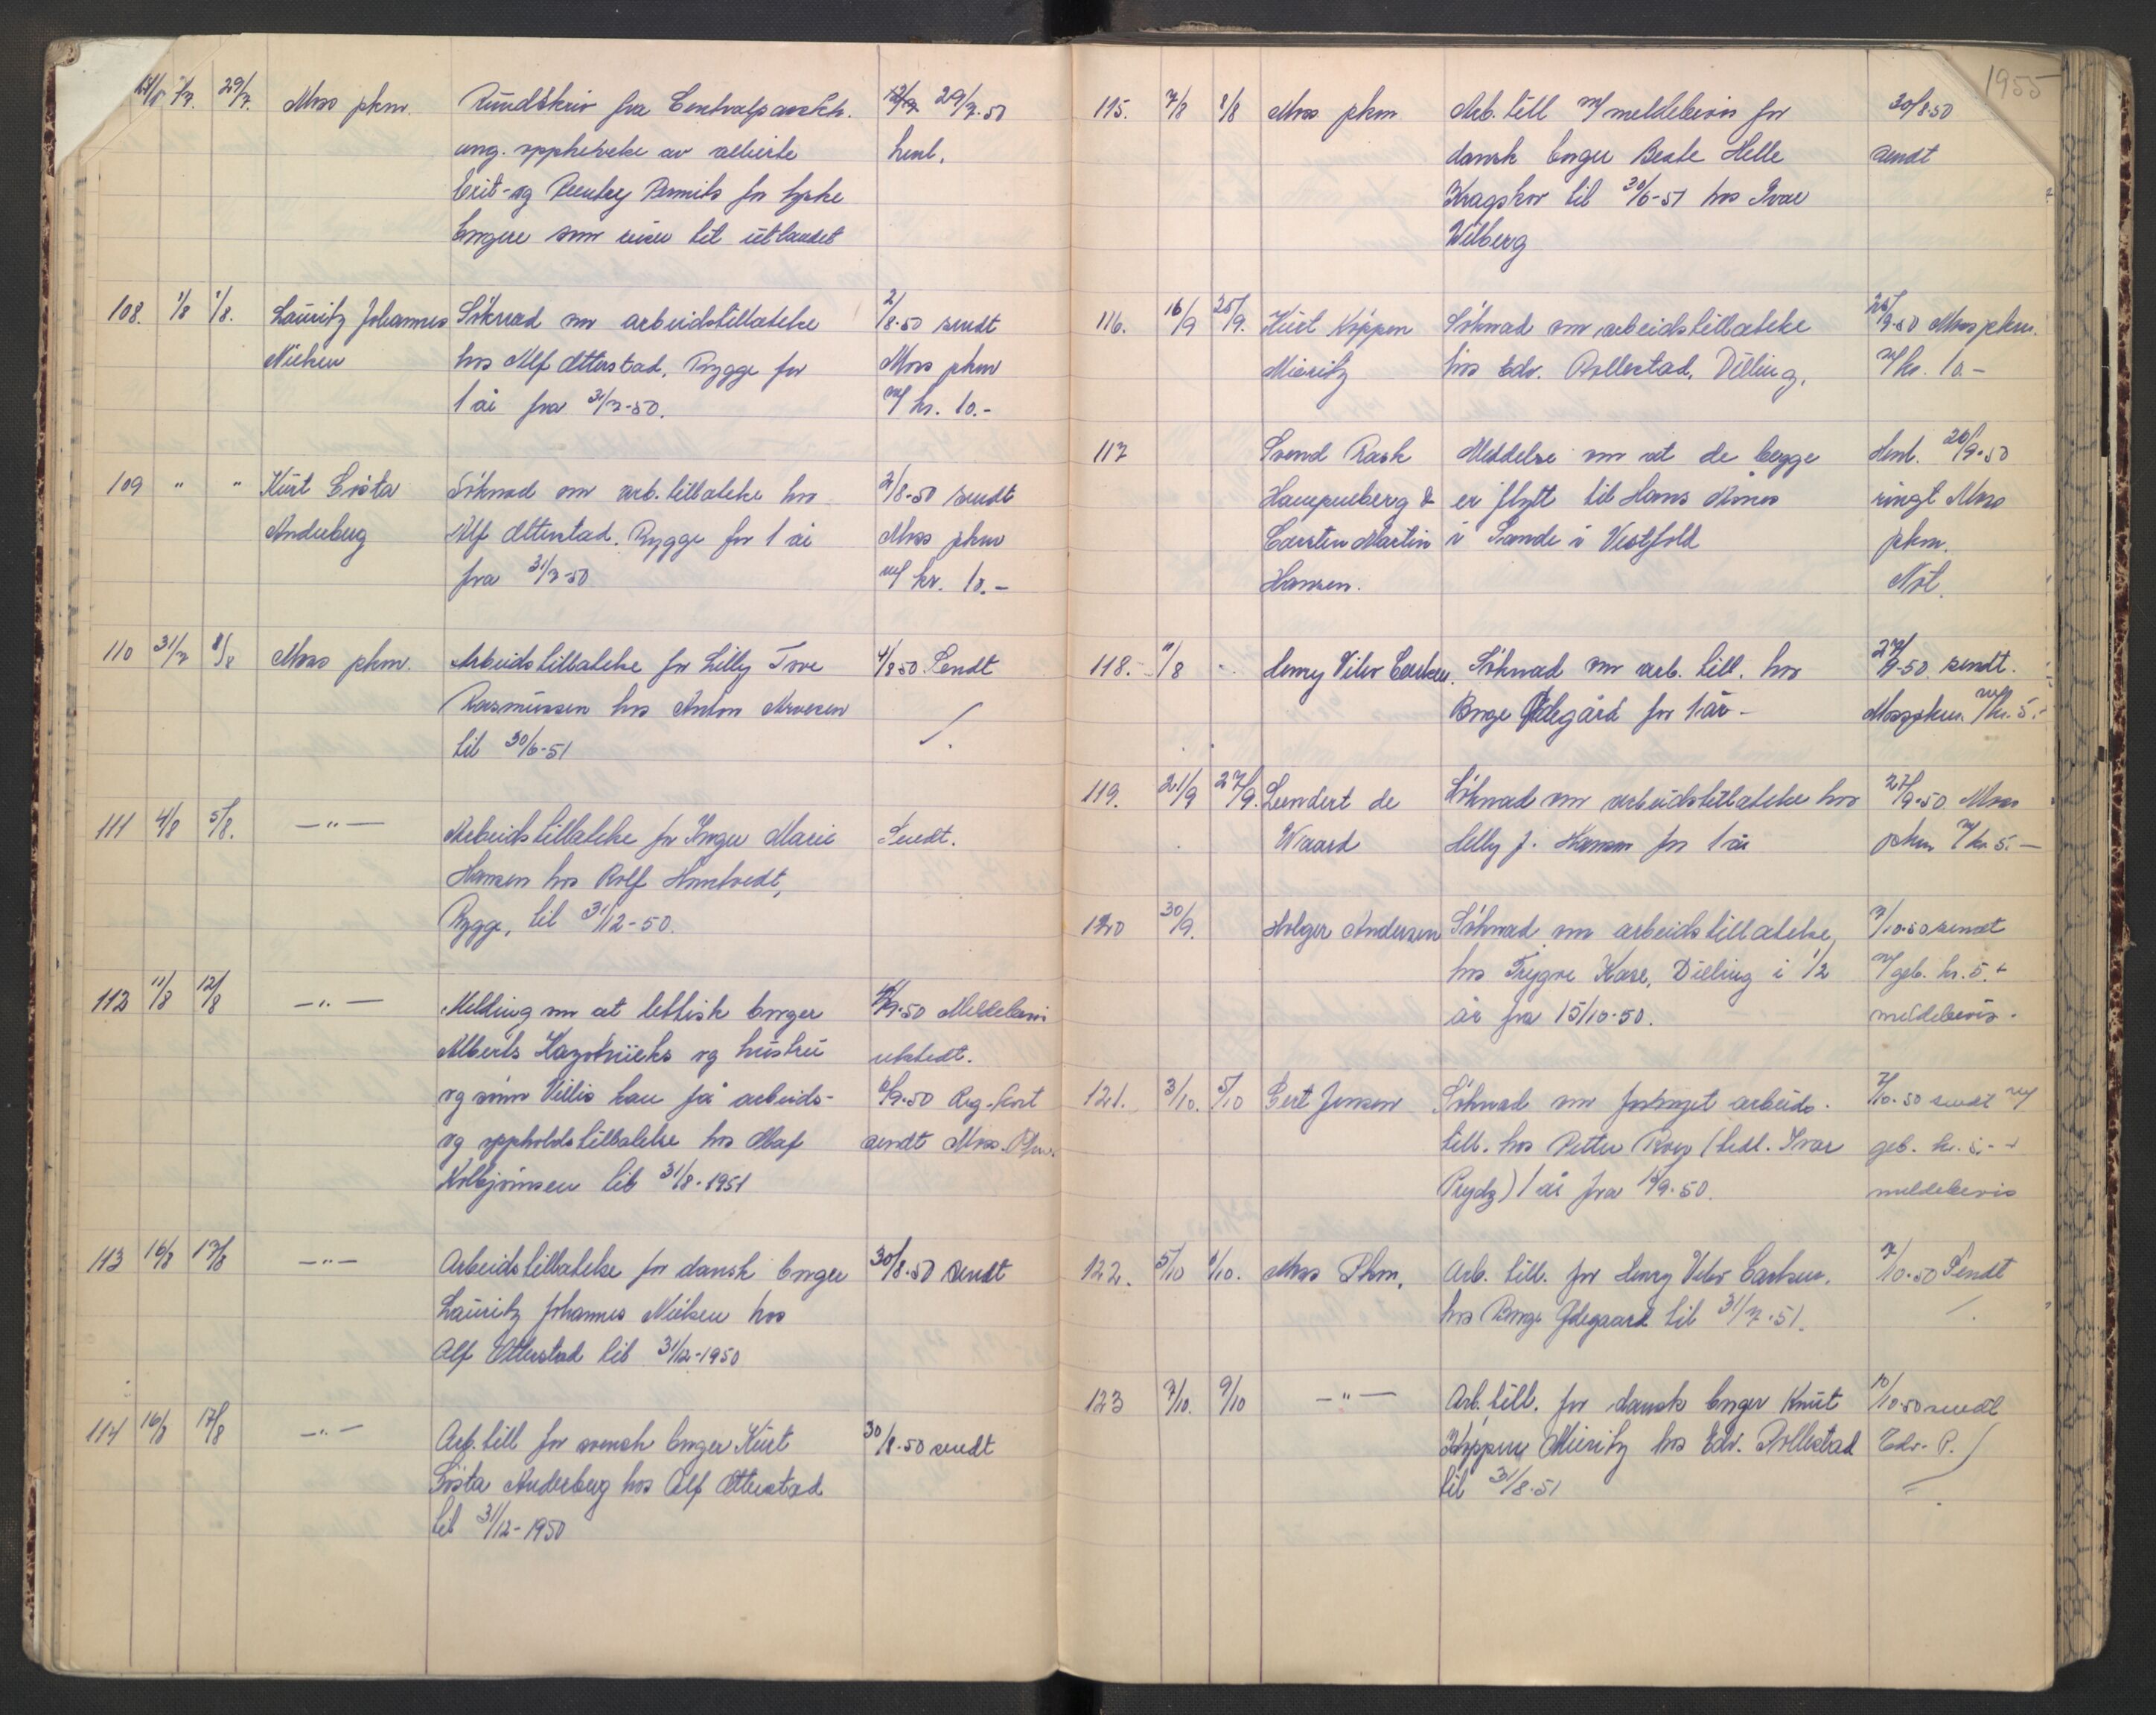 29/7. Moss pkm. Rundskriv fra Centralpassktr. 29/7.50
ang. opphevelse av allierte henl.
Exit- og Reentry Permits for tyske
borgere som reiser til utlandet
108. 1/8 1/8. Lauritz Johannes Söknad om arbeidstillatelse 2/8.50 sendt
Nielsen hos Alf Otterstad, Rygge for Moss pkm
1 år fra 31/7-50. m/ kr. 10.-
109 " " Kurt Gösta Söknad om arb. tillatelse hos 2/8-50 sendt
Anderberg Alf Otterstad. Rygge for 1 år Moss pkm
fra 31/7-50 m/ kr. 10.-
110 31/7 Moss pkm. Arbeidstillatelse for Lilly Tove 4/8 50. Sendt
Rasmussen hos Anton Arvesen
til 30/6-51
111 4/8 5/8. —"— Arbeidstillatelse for Inger Marie Sendt.
Hansen hos Rolf
Rygge, til 31/12-50.
112 11/8 12/8 —"— Melding om at lettisk borger 9.50 Meldebevis
Alberts og hustru utstedt.
og sönn Villis kan få arbeids- 9.50 Reg. kort
og oppholdstillatelse hos Olaf sendt Moss. Pkm.
Kolbjörnsen til 31/8-1951
113 16/8 17/8 —"— Arbeidstillatelse for dansk borger 30/8.50 sendt
Lauritz Johannes Nielsen hos
Alf Otterstad til 31/12-1950
114 16/8 17/8 —"— Arb. till for svensk borger Kurt 30/8.50 sendt
Gösta Anderberg hos Alf Otterstad
til 31/12-1950
1955
115. 7/8 8/8 Moss pkm Arb. till m/ meldebevis for 30/8-50
dansk borger Beate Helle sendt
Kragskov til 30/6-51 hos Ivar
Wilberg
116. 16/9 25/9. Kurt Köppen Söknad om arbeidstillatelse 9.50 Moss pkm.
Mieritz hos Edv. Rollestad, Dilling. m/ kr. 10.-
117 Svend Rask Meddelse om at de begge Henl. 26/9-50
Hampenberg & er flytt til Hans ringt Moss
Carsten Martin i Sande i Vestfold pkm.
Hansen. Not.
118. 11/8 Henry Viktor Söknad om arb. till. hos 9-50. sendt.
Borge Ödegård for 1 år - Moss pkm. m/ kr. 5.-
119. 21/9 27/9. Leendert de Söknad om arbeidstillatelse hos 27/9.50 Moss
Waard Helly J. Hansen for 1 år pkm m/ kr 5.-
120 30/9. Holger Andersen Söknad om arbeidstillatelse 7/10.50 sendt
hos Trygve Kase, Dilling i 1/2 m/ geb. kr. 5 +
år fra 15/10-50. meldebevis.
121. 3/10. 5/10 Gert Jensen Söknad om forlenget arbeids- 7/10.50 sendt m/
till. hos Petter Roer (tidl. Ivar geb. kr. 5.- +
Prydz) 1 år fra 9.50. meldebevis
122. 5/10 6/10. Moss Pkm. Arb. till. for Henry Viktor 7/10.50 Sendt
hos Borge Ödegaard til 31/7.51.
123 7/10. 9/10 —"— Arb. till. for dansk borger Knut 10/10.50 sendt
Köppen Mieritz hos Edv. Rollestad Edv. R.
til 31/8.51